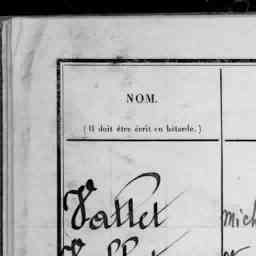 NOM.
( Il doit être écrit en bâtarde. )
Vallet Mich